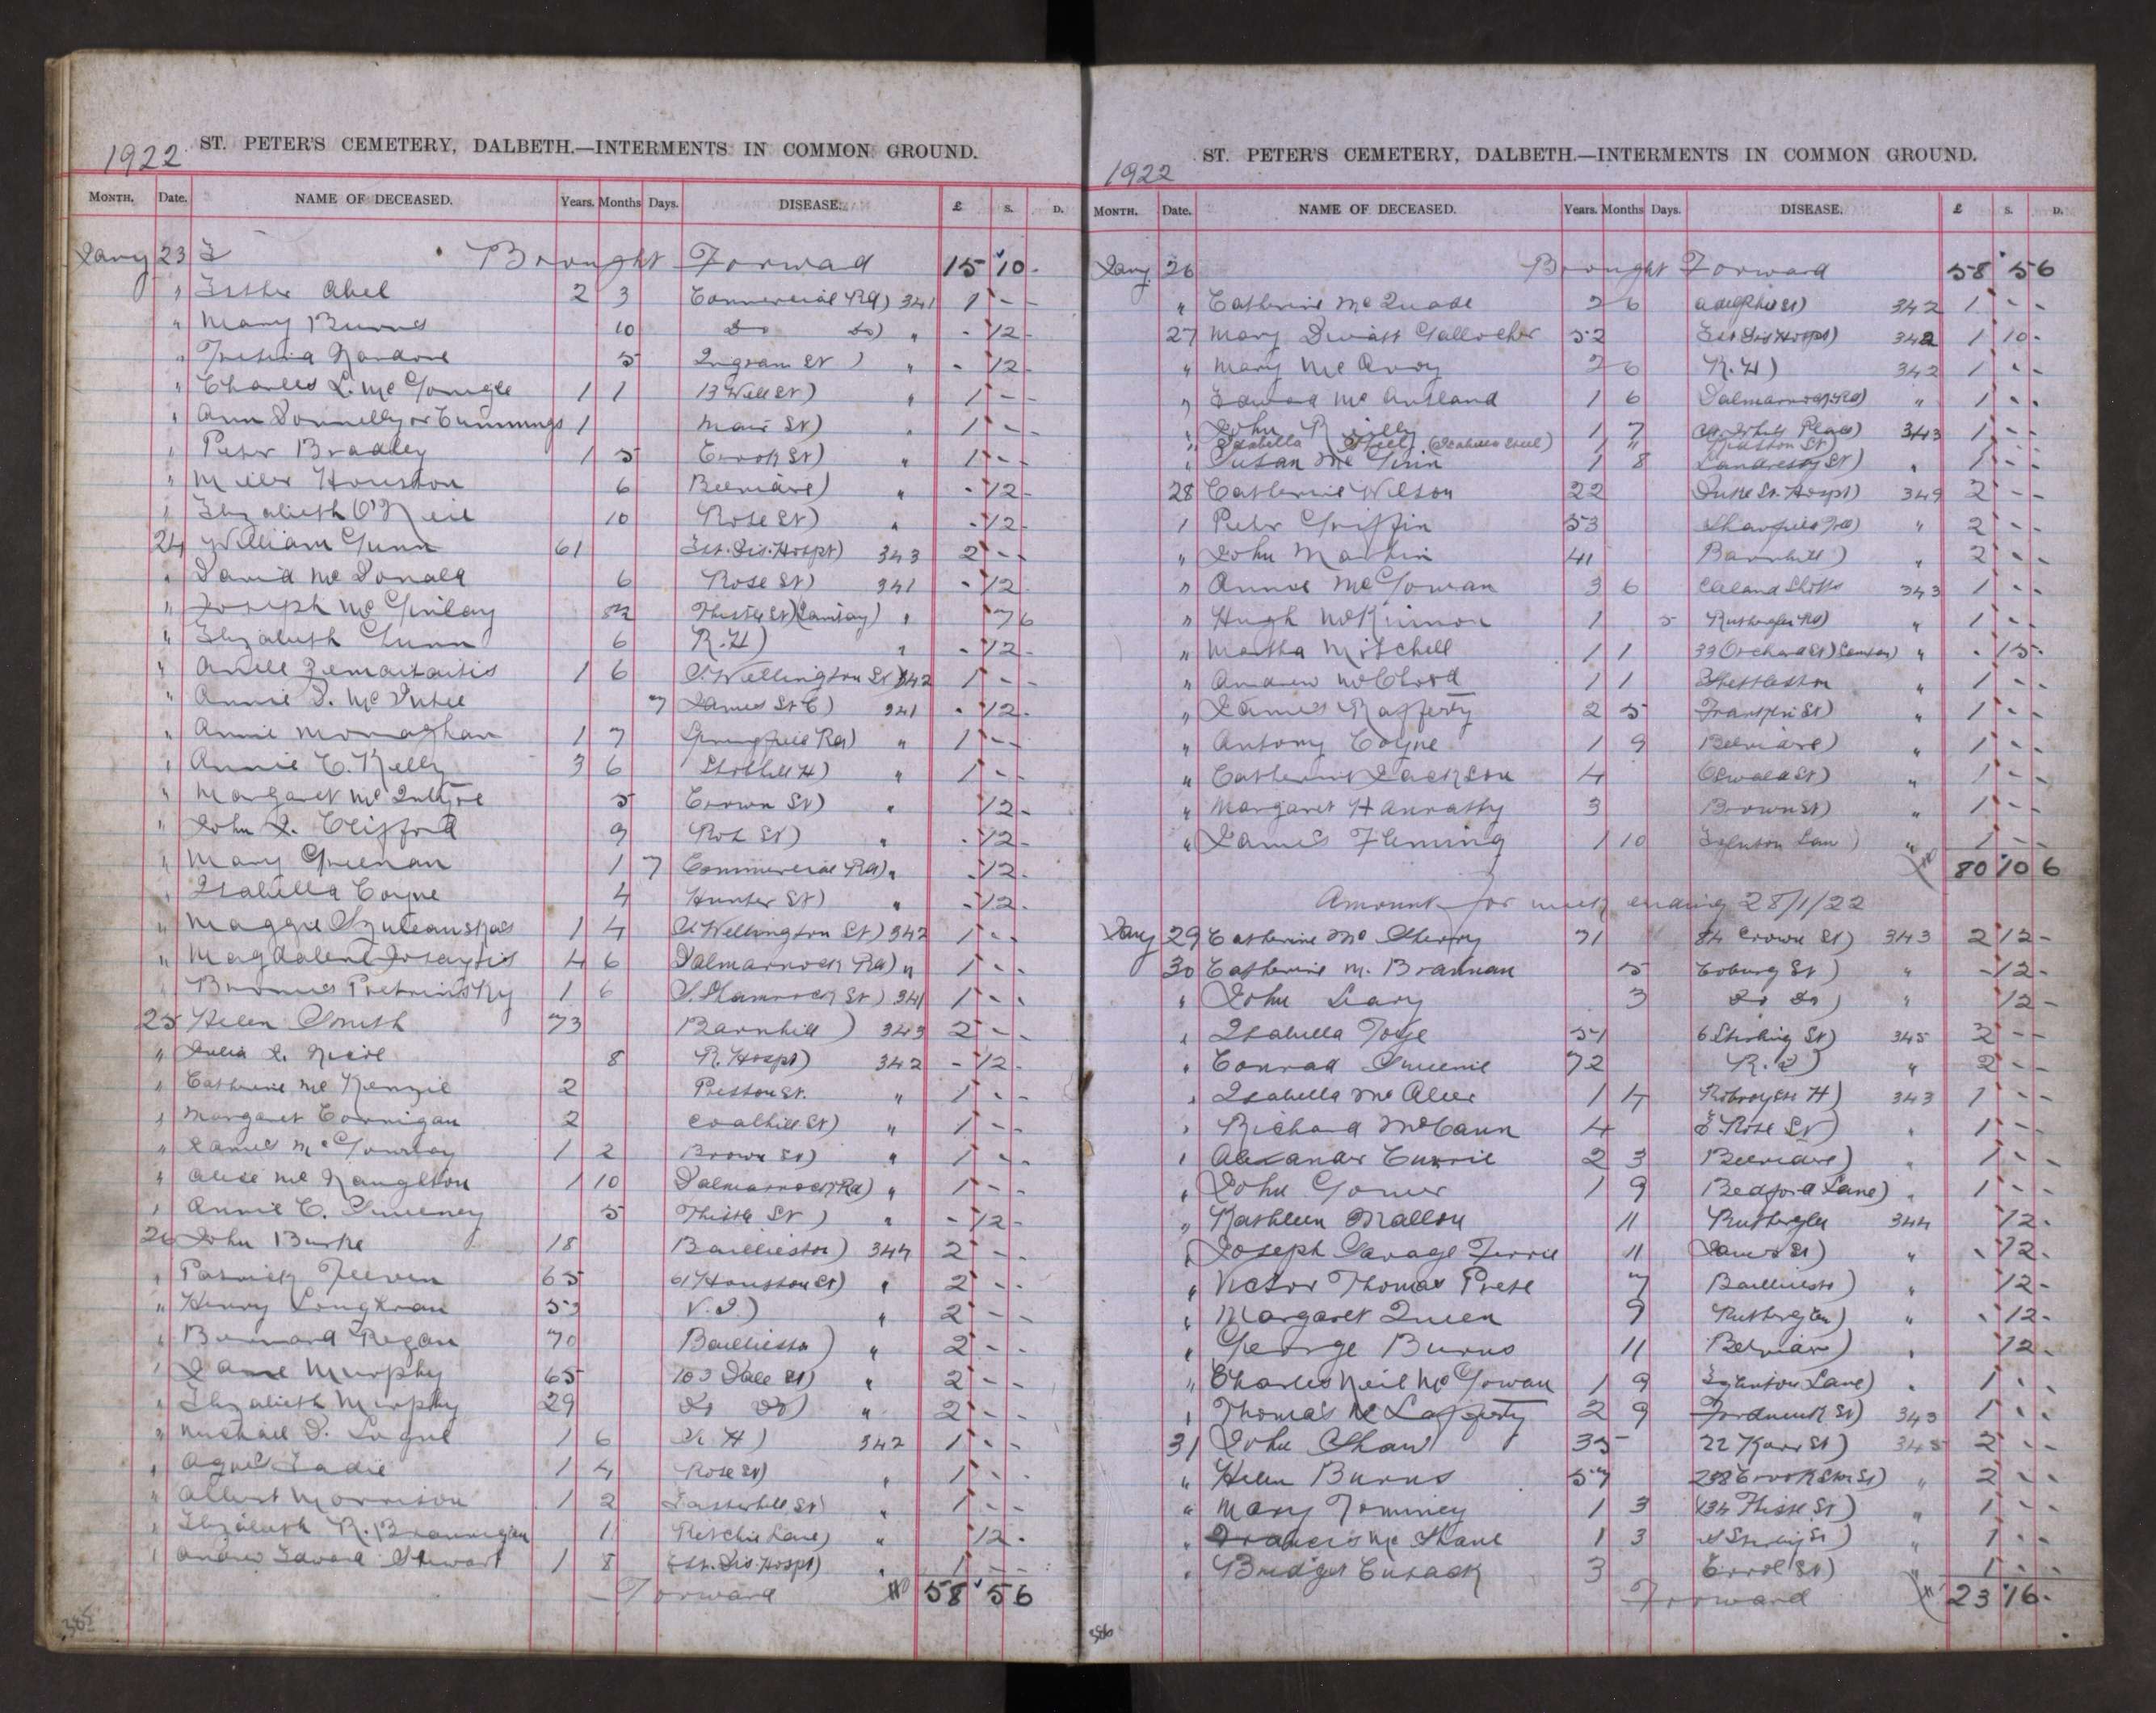 1922
ST. PETER'S CEMETERY, DALBETH.—INTERMENTS IN COMMON GROUND.
MONTH. Date. NAME OF DECEASED. Years. Months Days. DISEASE. £ s. D.
Jany 23 Brought Forward 15 10 -
" Esther Abel 2 3 Commercial Rd) 341 1 - -
" Mary Burns 10 Do Do) " - 12 -
" Nardone 5 Ingram St) " - 12 -
" Charles L. McGonigle 1 1 13 Well St) " 1 - -
" Ann Donnelly or Cummings 1 Main St) " 1 - -
" Peter Bradley 1 5 Crook St) " 1 - -
" Miller Houston 6 Belvidere) " - 12 -
" Elizabeth O'Neil 10 Rose St) " - 12 -
24 William Gunn 61 Est. Dis. Hospt) 343 2 - -
" David McDonald 6 Rose St) 341 - 12 -
" Joseph McGinlay Thistle St) " 7 6
" Elizabeth Gunn 6 R.H) " - 12 -
" Zemaitaitis 1 6 S. Wellington St) 342 1 - -
" Annie D. McPhee 7 James St C) 341 - 12 -
" Annie Monaghan 1 7 Springfield Rd) " 1 - -
" Annie C. Kelly 3 6 Stobhill H) " 1 - -
" Margaret McIntyre 5 Crown St) " 12 -
" John J. Clifford 9 Rose St) " - 12 -
" Mary Greenan 1 7 Commercial Rd) " - 12 -
" Isabella Coyne 4 Hunter St) " - 12 -
" Maggie 1 4 S. Wellington St) 342 1 - -
" Magdalene 4 6 Dalmarnock Rd) " 1 - -
" 1 6 S. Shamrock St) 341 1 - -
25 Helen Smith 73 Barnhill) 343 2 - -
" Julia J. Neil 8 R. Hospt) 342 - 12 -
" Catherine McKenzie 2 Preston St. " 1 - -
" Margaret Corrigan 2 Coalhill St) " 1 - -
" James McGourlay 1 2 Brown St) " 1 - -
" Alice McNaughton 1 10 Dalmarnock Rd) " 1 - -
" Annie C. Sweeney 5 Thistle St) " - 12 -
26 John Burke 18 Baillieston) 344 2 - -
" Patrick Feeven 65 61 Houston St) " 2 - -
" Henry Loughran 53 V.I) " 2 - -
" Bernard Regan 70 Baillieston) " 2 - -
" Jane Murphy 65 103 Dale St) " 2 - -
" Elizabeth Murphy 29 Do Do) " 2 - -
" Michael D. Logue 1 6 R.H) 342 1 - -
" Agnes Eadie 1 4 Rose St) " 1 - -
" Albert Morrison 1 2 Easterhill St) " 1 - -
" Elizabeth R. Brannigan 1 Ritchie Lane) " 12 -
" Andrew Edward Stewart 1 8 Est. Dis. Hospt) " 1 - -
Forward 58 5 6
385
1922
ST. PETER'S CEMETERY, DALBETH.—INTERMENTS IN COMMON GROUND.
MONTH. Date. NAME OF DECEASED. Years. Months Days. DISEASE. £ s. D.
Jany 26 Brought Forward 58 5 6
" Catherine McQuade 2 6 Adelphi St) 342 1 - -
27 Mary Gallocher 52 Est Dis Hospt) 342 1 10 -
" Mary McAvoy 2 6 R.H) 342 1 - -
" Edward McAusland 1 6 Dalmarnock Rd) " 1 - -
" John Reilly 1 7 Place) 343 1 - -
" Isabella Steel (Isabella Steel) 1 " St)
" Susan McGinn 1 8 Landressy St) " 1 - -
28 Catherine Wilson 22 Duke St. Hospt) 344 2 - -
" Peter Griffin 53 " 2 - -
" John Martin 41 Barnhill) " 2 - -
" Annie McGowan 3 6 Cleland Slotts 343 1 - -
" Hugh McKinnon 1 5 Rutherglen Rd) " 1 - -
" Martha Mitchell 1 1 33 Orchard St) " - 15 -
" Andrew McCloud 1 1 Shettleston " 1 - -
" James Rafferty 2 5 Franklin St) " 1 - -
" Antony Coyne 1 9 Belvidere) " 1 - -
" Catherine Jackson 4 Oswald St) " 1 - -
" Margaret Hanratty 3 Brown St) " 1 - -
" James Fleming 1 10 Eglinton Lane) " 1 - -
80 10 6
Amount for week ending 28/1/22
Jany 29 Catherine McSherry 71 84 Crown St) 343 2 12 -
30 Catherine M. Brannan 5 Coburg St) " - 12 -
" John Leary 3 Do Do) " 12 -
" Isabella Toye 51 6 Stirling St) 345 2 - -
" Conrad Sweenie 72 " 2 - -
" Isabella McAleer 1 4 Robroyston H) 343 1 - -
" Richard McCann 4 8 Rose St) " 1 - -
" Alexander Currie 2 3 Belvidere) " 1 - -
" John Gomer 1 9 Bedford Lane) " 1 - -
" Kathleen Mallon 11 Rutherglen 344 12 -
" Joseph Savage Ferrie 11 James St) " - 12 -
" Victor Thomas Prese 7 Baillieston) " 12 -
" Margaret Queen 9 Rutherglen) " - 12 -
" George Burns 11 Belvidere) " 12 -
" Charles Neil McGowan 1 9 Eglinton Lane) " 1 - -
" Thomas McLafferty 2 9 St) 343 1 - -
31 John Shaw 35 22 Kerr St) 345 2 - -
" Helen Burns 57 298 Crookston St) " 2 - -
" Mary Tominey 1 3 134 Thistle St) " 1 - -
" Francis McShane 1 3 St) " 1 - -
" Bridget Cusack 3 Errol St) " 1 - -
Forward 23 16 -
386